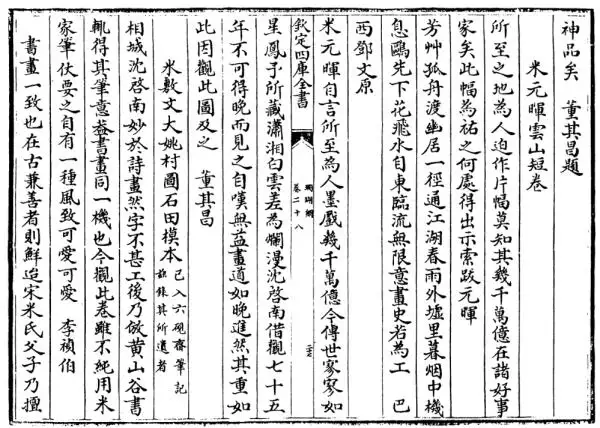 神品矣　董其昌題
米元暉雲山短卷
所至之地為人迫作片幅莫知其幾千萬億在諸好事
家矣此幅為祐之何處得出示索跋元暉
芳艸孤舟渡幽居一徑通江湖春雨外墟里暮烟中機
息鷗先下花飛水自東臨流無限意畫史若為工　巴
西鄧文原
米元暉自言所至為人墨戲幾千萬億今傳世寥寥如
欽定四庫全書
珊瑚網
卷二十八
星鳳予所藏瀟湘白雲差為爛漫沈啓南借觀七十五
年不可得晚而見之自嘆無益畫道如晚進然其重如
此因觀此圖及之　董其昌
米敷文大姚村圖石田模本
已入六硯齋筆記
兹錄其所遺者
相城沈啓南妙於詩畫然字不甚工後乃倣黄山谷書
輒得其筆意葢書畫同一機也今觀此卷雖不純用米
家筆仗要之自有一種風致可愛可愛　李禎伯
書畫一致也在古兼善者則鮮迨宋米氏父子乃擅